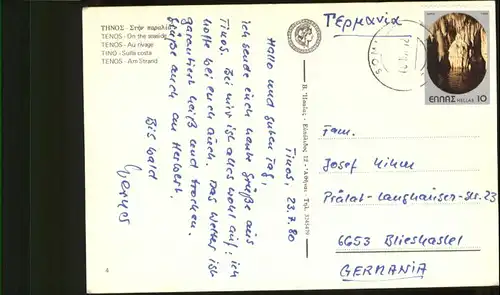 ΤΗΝΟΣ - Στήν παραλία
TENOS - On the seaside
TENOS - Au rivage
TINO - Sulla costa
TENOS - Am Strand
Tinos, 23.7.80
Hallo und guten Tag,
ich sende euch heute Grüße aus
Tinos. Bei mir ist alles wohl auf; ich
hoffe bei euch auch. Das Wetter ist
garantiert heiß und trocken.
Grüße auch an Herbert.
Bis bald
4
Γερμανία
ΕΛΛΑΣ HELLAS 10
Fam.
Josef
Prälat-Langhauser-Str. 23
6653 Blieskastel
GERMANIA